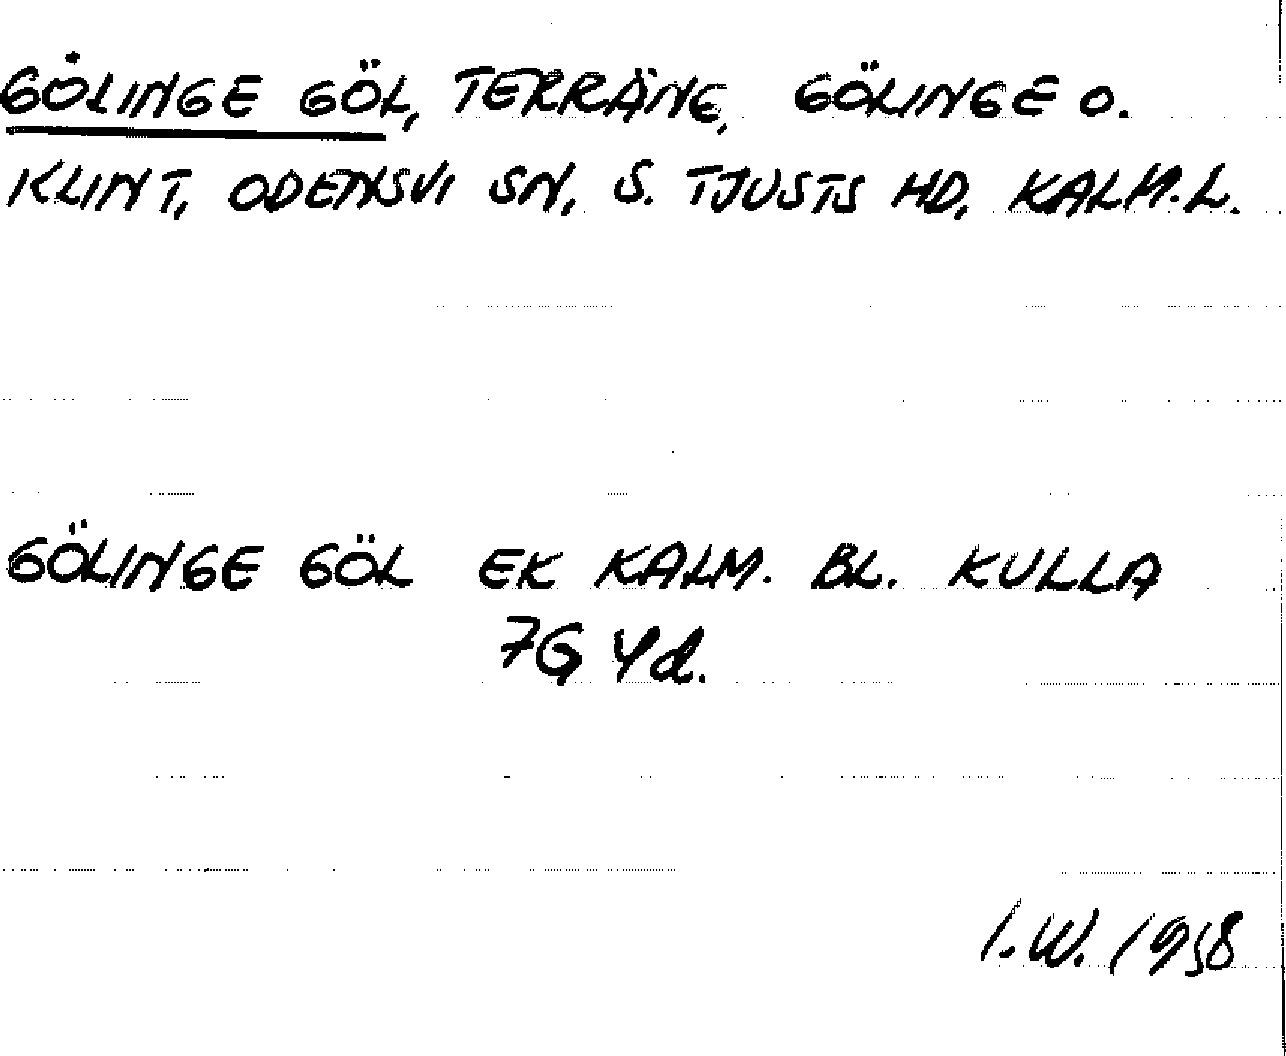 GÖLINGE GÖL, TERRÄNG, GÖLINGE O.
KLINT, ODENSVI SN, S. TJUSTS HD, KALM.L.
GÖLINGE GÖL EK KALM. BL. KULLA
7G 4d.
I.W. 1958